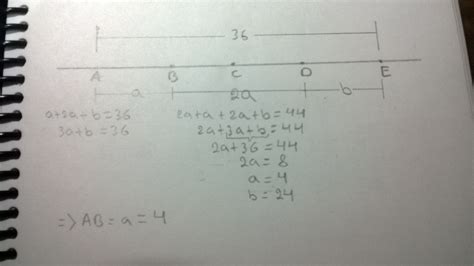 36
A B C D E
a 2a b
a+2a+b=36
3a+b=36
2a+a+2a+b=44
2a+3a+b=44
2a+36=44
2a=8
a=4
b=24
=> AB=a=4